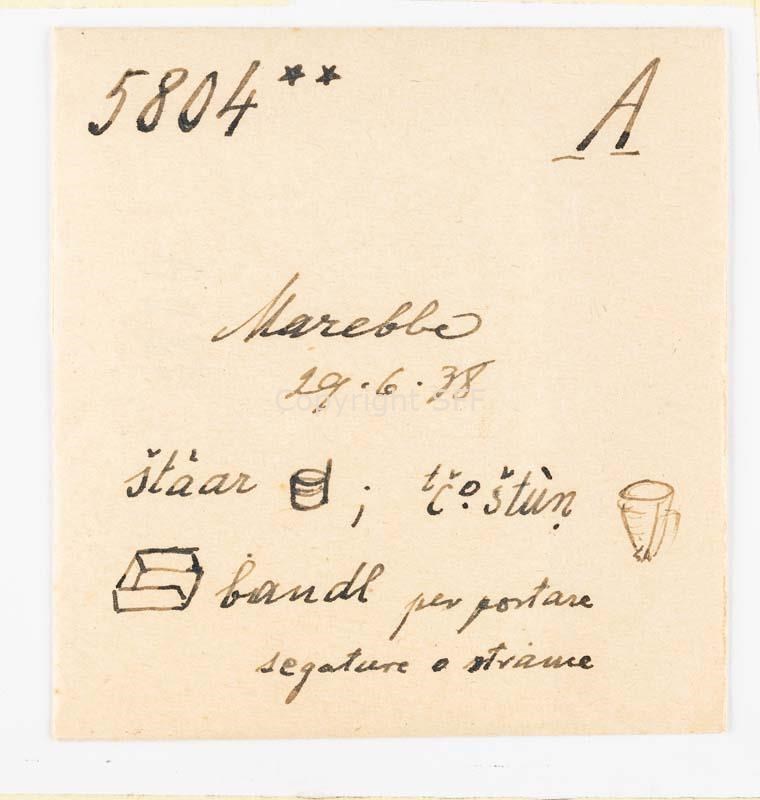 5804** A
Marebbe
29.6.38
Copyright SFF
štàar ; tčọštùṇ
bandl per portare
segature o strame